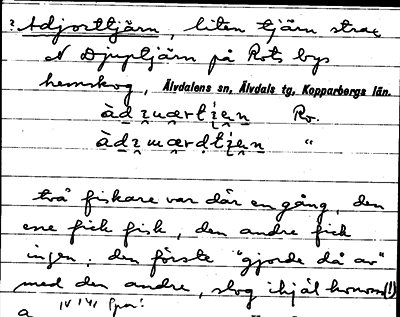 ? Adjorttjärn, liten tjärn strax
N Djuptjärn på Rots bys
hemskog, Älvdalens sn, Älvdals tg, Kopparbergs län.
Ro.
"
två fiskare var där en gång, den
ene fick fisk, den andre fick
ingen; den förste "gjorde då av"
med den andre, slog ihjäl honom (!)